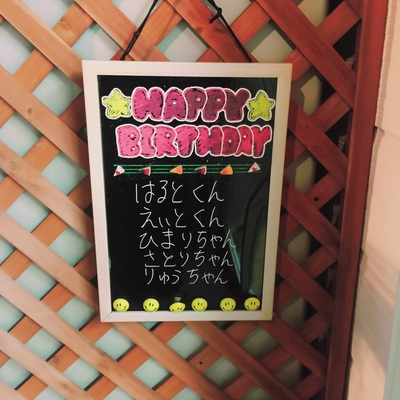 HAPPY
BIRTHDAY
はるとくん
えいとくん
ひまりちゃん
さとりちゃん
りゅうちゃん